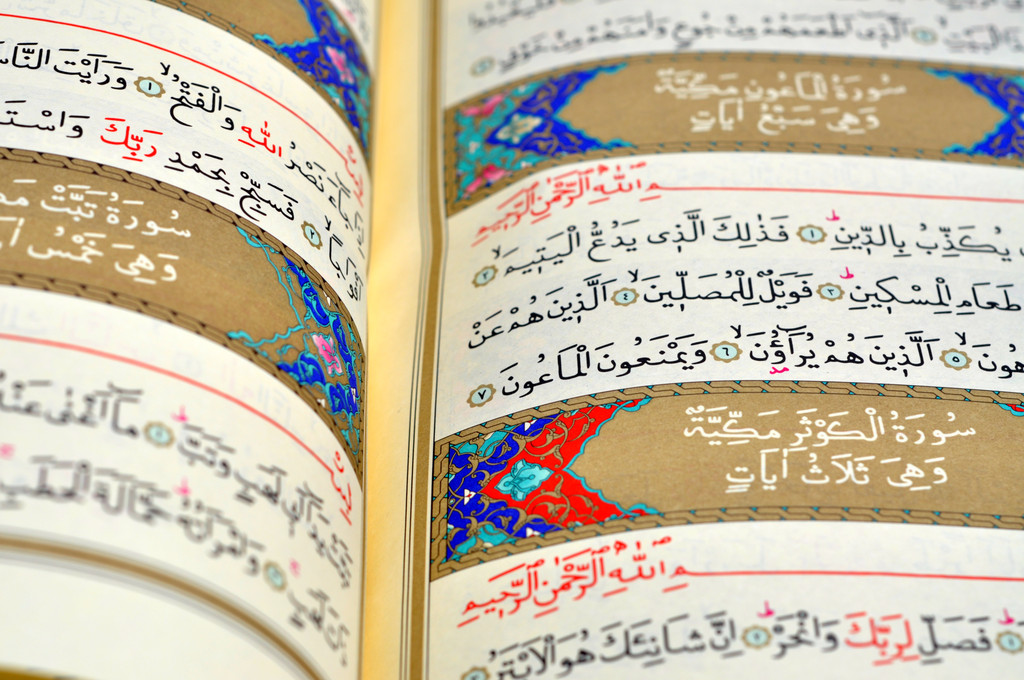 الْبَيْتِۙ ٣ اَلَّذ۪ٓي اَطْعَمَهُمْ مِنْ جُوعٍ وَاٰمَنَهُمْ مِنْ خَوْفٍ ٤
سُورَةُ الْمَاعُونِ مَكِّيَّةٌ
وَهِيَ سَبْعُ اٰيَاتٍ
مِ اللّٰهِ الرَّحْمٰنِ الرَّح۪يمِ
يُكَذِّبُ بِالدّ۪ينِۜ ١ فَذٰلِكَ الَّذ۪ي يَدُعُّ الْيَت۪يمَۙ ٢
طَعَامِ الْمِسْك۪ينِۜ ٣ فَوَيْلٌ لِلْمُصَلّ۪ينَۙ ٤ اَلَّذ۪ينَ هُمْ عَنْ
هُونَۙ ٥ اَلَّذ۪ينَ هُمْ يُرَٓاؤُ۫نَۙ ٦ وَيَمْنَعُونَ الْمَاعُونَ ٧
سُورَةُ الْكَوْثَرِ مَكِّيَّةٌ
وَهِيَ ثَلَاثُ اٰيَاتٍ
مِ اللّٰهِ الرَّحْمٰنِ الرَّح۪يمِ
١ فَصَلِّ لِرَبِّكَ وَانْحَرْۜ ٢ اِنَّ شَانِئَكَ هُوَ الْاَبْتَرُ ٣
جَٓاءَ نَصْرُ اللّٰهِ وَالْفَتْحُۙ ١ وَرَاَيْتَ النَّاسَ
اَفْوَاجًاۙ ٢ فَسَبِّحْ بِحَمْدِ رَبِّكَ وَاسْتَ
سُورَةُ تَبَّتْ مَ
وَهِيَ خَمْسُ اٰ
تَبَّتْ يَدَٓا اَب۪ي لَهَبٍ وَتَبَّۜ ١ مَٓا اَغْنٰى عَنْهُ
لَهَبٍۚ ٣ وَامْرَاَتُهُۜ حَمَّالَةَ الْحَطَبِۚ